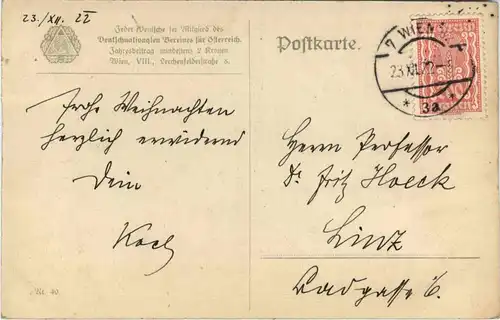 23./XII. 22
Jeder Deutsche sei Mitglied des
Deutschnationalen Vereines für Österreich.
Jahresbeitrag mindestens 2 Kronen
Wien, VIII., Lerchenfelderstraße 8.
Postkarte.
7 WIEN
23.XII.
* 3a *
Frohe Weihnachten
herzlich erwidernd
Dein
Koch
Herrn Professor
Dr. Fritz Hoeck
Linz
Badgasse 6.
Nr. 40